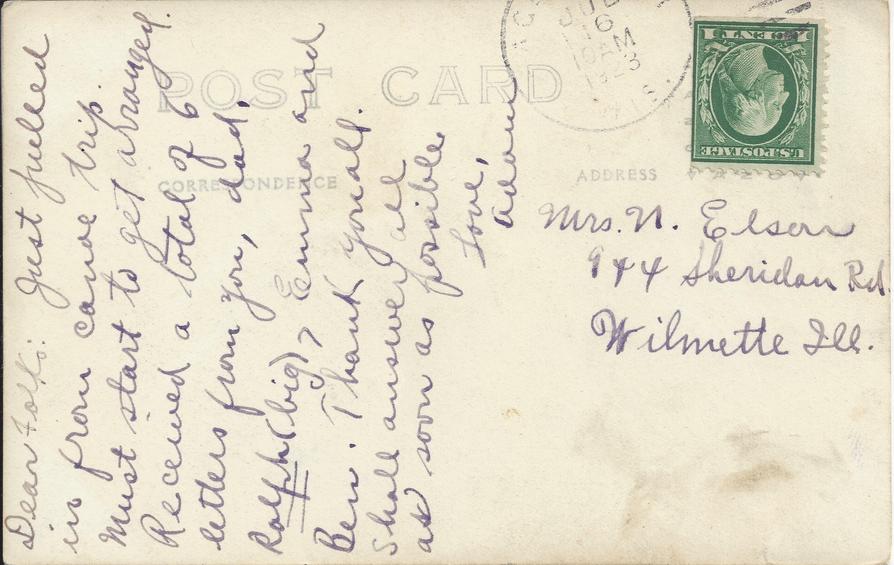 POST CARD
CORRESPONDENCE
ADDRESS
Dear Folks: Just pulled
in from canoe trip.
Must start to get arranged.
Received a total of 6
letters from you, dad,
Ralph (big), Emma and
Ben. Thank you all.
Shall answer all
as soon as possible
Love,
Adam
JUL
16
10 AM
1923
WIS.
1 CENT 1
U.S. POSTAGE
Mrs. N. Elson
944 Sheridan Rd.
Wilmette Ill.